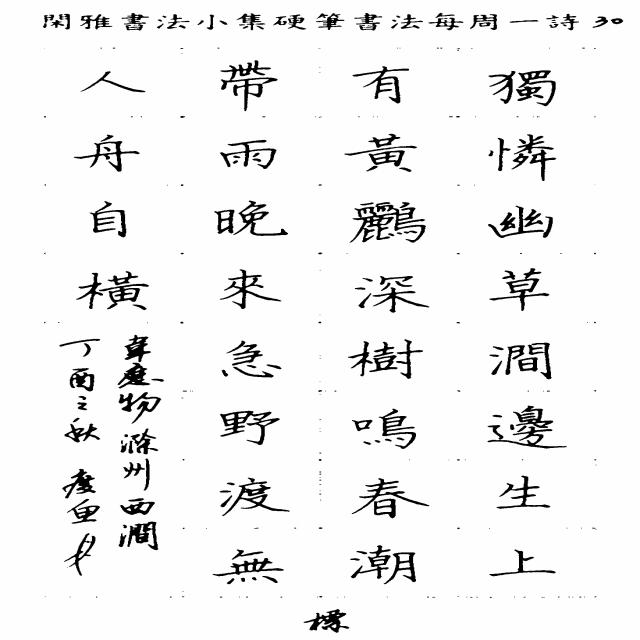 閑雅書法小集硬筆書法每周一詩 30
獨憐幽草澗邊生上
有黃鸝深樹鳴春潮
帶雨晚來急野渡無
人舟自橫
韋應物滁州西澗
丁酉之秋